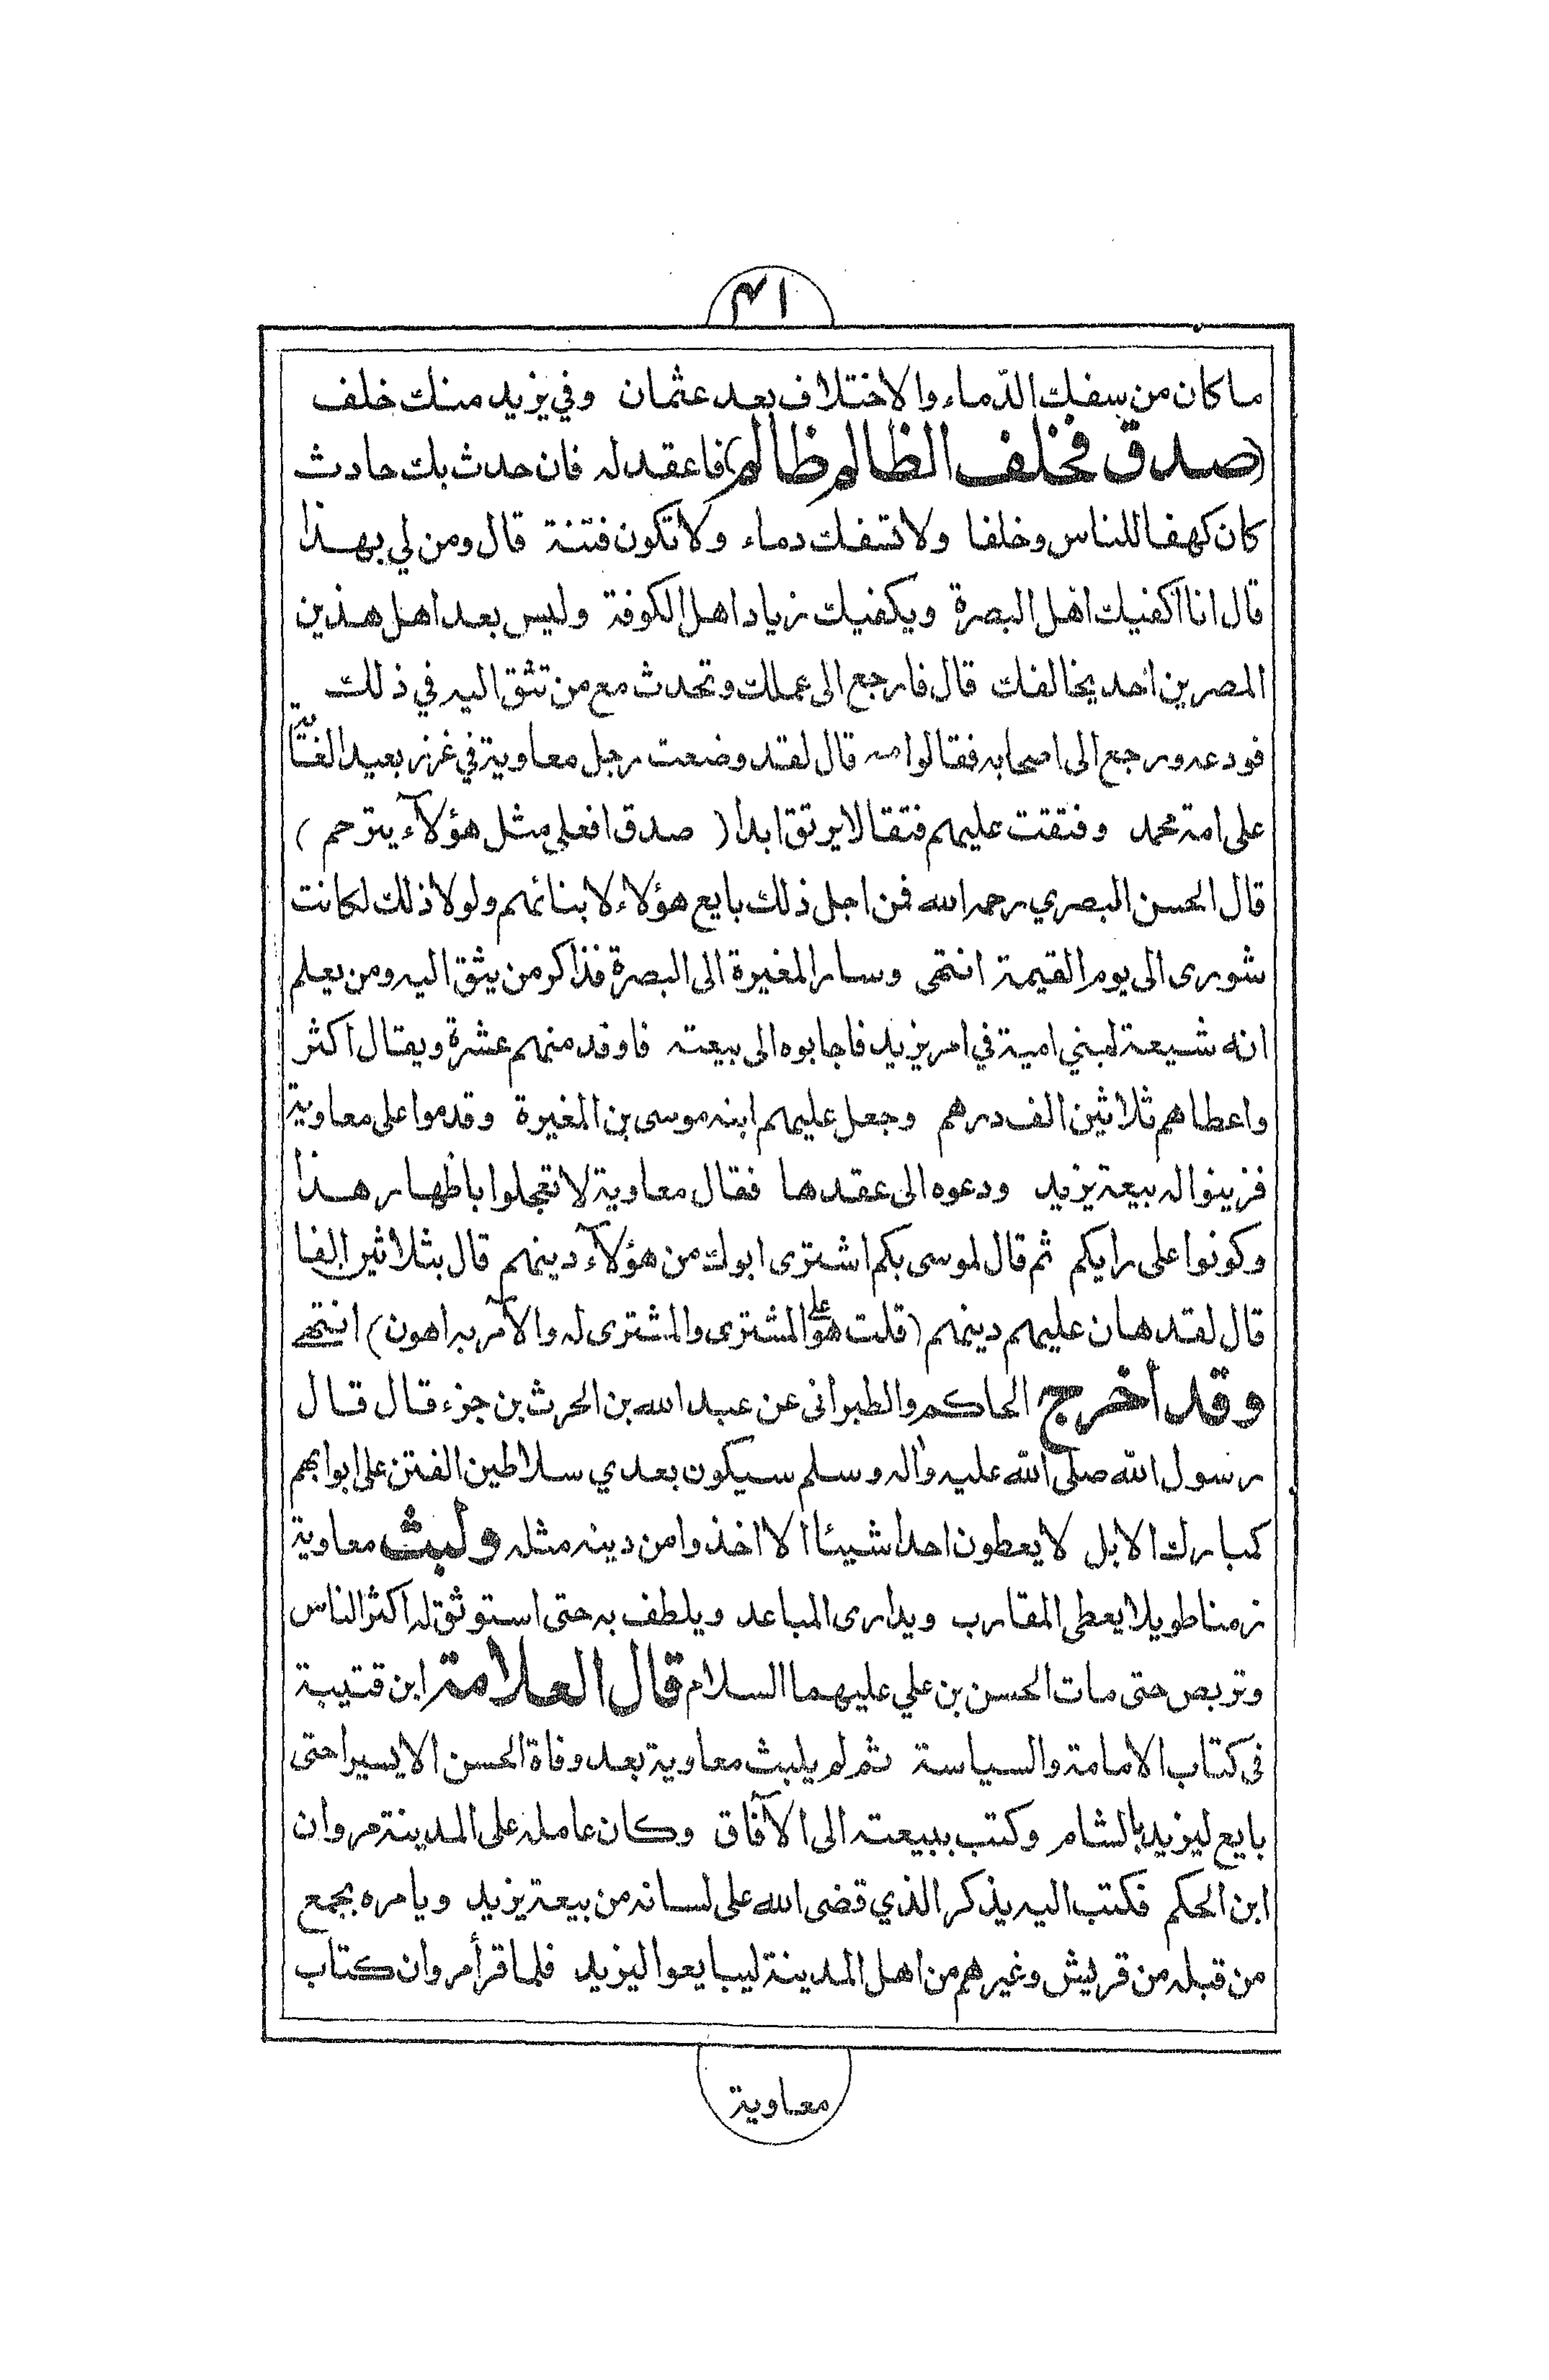 ٤١
ما كان من سفك الدّماء والاختلاف بعد عثمان وفي يزيد منك خلف
(صدق فخلف الظالم ظالم) فاعقد له فان حدث بك حادث
كان كهفا للناس وخلفا ولا تسفك دماء ولا تكون فتنة قال ومن لي بهذا
قال انا اكفيك اهل البصرة ويكفيك زياد اهل الكوفة وليس بعد اهل هذين
المصرين احد يخالفك قال فارجع الى عملك وتحدث مع من تثق اليه في ذلك
فودعه ورجع الى اصحابه فقالوا مه قال لقد وضعت رجل معاوية في غرز بعيد الغاية
على امة محمد وفتقت عليهم فتقا لا يرتق ابدا ( صدق افعلي مثل هؤلآء يترحم )
قال الحسن البصري رحمه الله فمن اجل ذلك بايع هؤلاء لابنائهم ولولا ذلك لكانت
شورى الى يوم القيمة انتهى وسار المغيرة الى البصرة فذاكر من يثق اليه ومن يعلم
انه شيعة لبني امية في امر يزيد فاجابوه الى بيعته فاوفد منهم عشرة ويقال اكثر
واعطاهم ثلاثين الف درهم وجعل عليهم ابنه موسى بن المغيرة وقدموا على معاوية
فزينوا له بيعة يزيد ودعوه الى عقدها فقال معاوية لا تعجلوا باظهار هذا
وكونوا على رايكم ثم قال لموسى بكم اشترى ابوك من هؤلآء دينهم قال بثلاثين الفا
قال لقد هان عليهم دينهم (قلت هو على المشترى والمشترى له والآمر به اهون) انتهى
وقد أخرج الحاكم والطبرانى عن عبد الله بن الحرث بن جزء قال قال
رسول الله صلى الله عليه واله وسلم سيكون بعدي سلاطين الفتن على ابوابهم
كمبارك الابل لا يعطون احدا شيئا الا اخذوا من دينه مثله ولبث معاوية
زمنا طويلا يعطى المقارب ويدارى المباعد ويلطف به حتى استوثق له اكثر الناس
وتربص حتى مات الحسن بن علي عليهما السلام قال العلامة ابن قتيبة
فى كتاب الامامة والسياسة ثم لم يلبث معاوية بعد وفاة الحسن الا يسيرا حتى
بايع ليزيد بالشام وكتب ببيعته الى الآفاق وكان عامله على المدينة مروان
ابن الحكم فكتب اليه يذكر الذي قضى الله على لسانه من بيعة يزيد ويامره بجمع
من قبله من قريش وغيرهم من اهل المدينة ليبايعوا ليزيد فلما قرأ مروان كتاب
معاوية